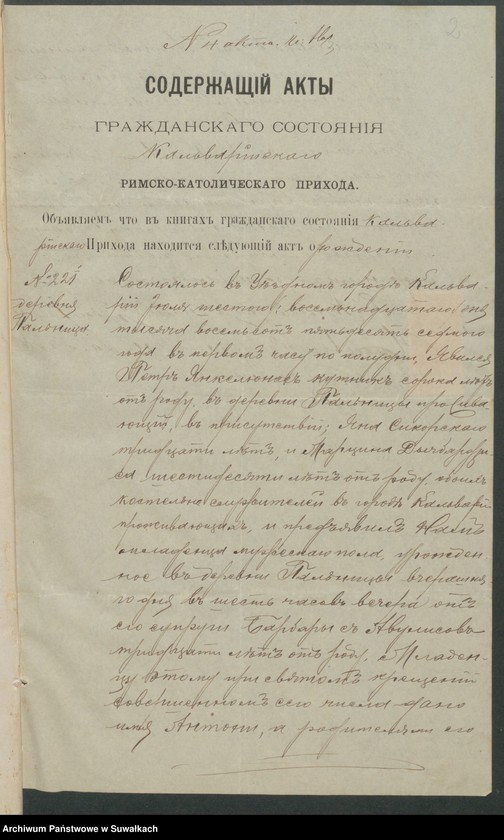 2
СОДЕРЖАЩІЙ АКТЫ
ГРАЖДАНСКАГО СОСТОЯНІЯ
Кальварійскаго
РИМСКО-КАТОЛИЧЕСКАГО ПРИХОДА.
Объявляемъ что въ книгахъ гражданскаго состоянія Кальва-
рійскаго Прихода находится слѣдующій актъ о рожденіи
№ 221
деревня
Состоялось въ Уѣздномъ городѣ Кальва-
ріи Іюля шестого/восемнадцатаго дня
тысяча восемьсотъ пятьдесятъ седмого
года въ первомъ часу по полудни, Явился
Петръ Янкелюнасъ кутникъ сорока лѣтъ
отъ роду въ деревни прожива-
ющій, въ присутствіи; Яна Сикорскаго
тридцати лѣтъ, и Марцина
шестидесяти лѣтъ отъ роду, обоихъ
костельн служителей въ городѣ Кальваріи
проживающихъ, и предъявилъ Намъ
младенца мужескаго пола, урожден-
ное въ деревни вчерашня-
го дня въ шесть часовъ вечера отъ
его супруги Барбары съ Авулисовъ
тридцати лѣтъ отъ роду. Младен-
цу этому при святомъ крещеніи
совершенномъ сего числа дано
имя Антони, а родителями его
Archiwum Państwowe w Suwałkach